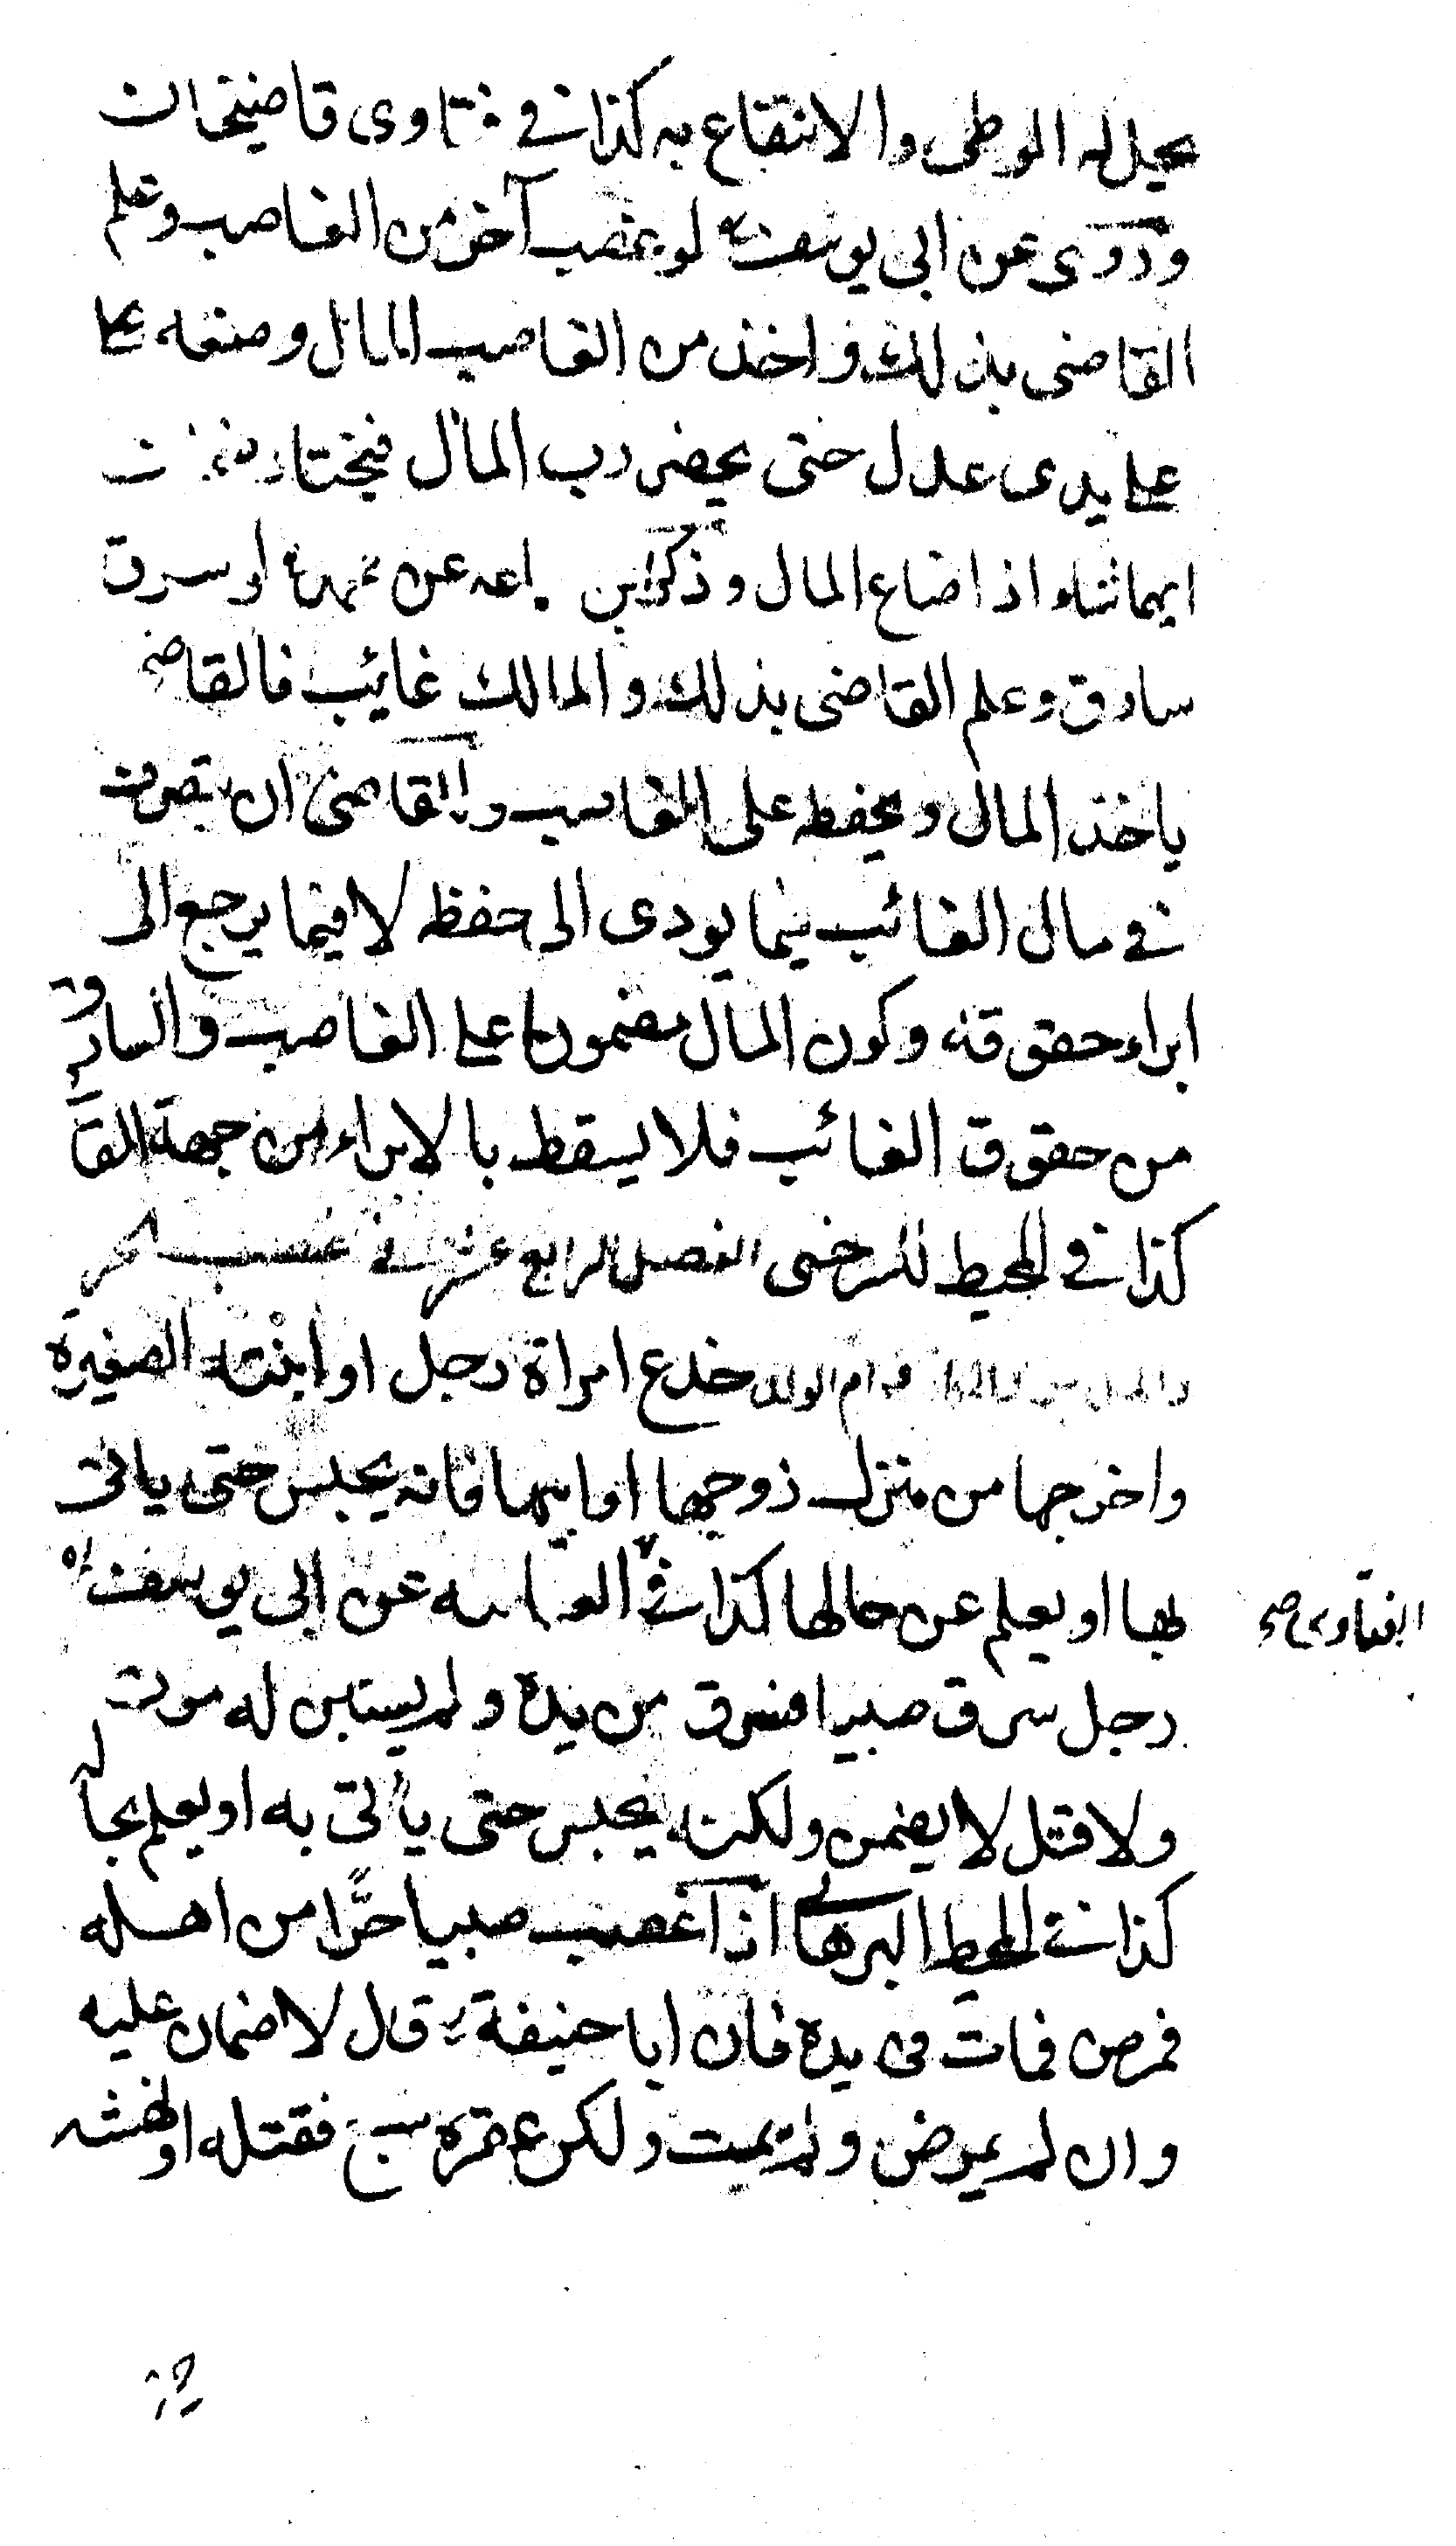 يحل له الوطى والانتفاع به كذا فى فتاوى قاضيخان
وروى عن ابى يوسف رح لو غصب آخر من الغاصب وعلم
القاضى بذلك فاخذ من الغاصب المال وضعه على
على يدى عدل حتى يحضر رب المال فيختار تضمين
ايهما شاء اذا ضاع المال وذكر ابن سماعه عن محمد رح لو سرق
سارق وعلم القاضى بذلك والمالك غايب فالقاضى
ياخذ المال ويحفظه على الغائب وللقاضى ان يتصرف
فى مال الغائب فيما يودى الى حفظه لا فيما يرجع الى
ابراء حقوقه وكون المال مضمونا على الغاصب والسارق
من حقوق الغائب فلا يسقط بالابراء من جهة القاضى
كذا فى المحيط للسرخسى الفصل الرابع عشر فى غصب الحر
وام الولد خدع امراة رجل او ابنته الصغيرة
واخرجها من منزل زوجها او ابيها فانه يحبس حتى ياتى
بها او يعلم عن حالها كذا فى عن ابى يوسف ره
الفتاوى صح
رجل سرق صبيا فسرق من يده ولم يستبن له موت
ولا قتل لا يضمن ولكن يحبس حتى يأتى به او يعلم بحاله
كذا فى المحيط البرهانى اذا غصب صبيا حرًا من اهله
فمرض فمات فى يده فان ابا حنيفة رح قال لا ضمان عليه
وان لم يمرض ولم يمت ولكن عقره سبع فقتله او نهشته